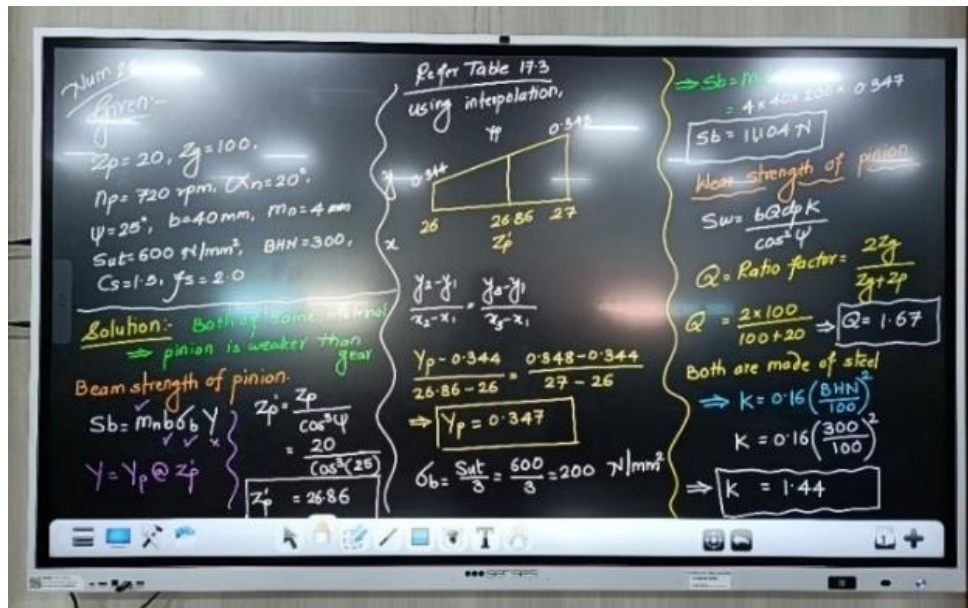 Num 2
Given:-
Zp = 20, Zg = 100,
np = 720 rpm, αn = 20°,
ψ = 25°, b = 40 mm, mn = 4 mm
Sut = 600 N/mm², BHN = 300,
Cs = 1.5, fs = 2.0
Solution:- Both of same material
⇒ pinion is weaker than
gear
Beam strength of pinion.
Sb = mn b σb Y
Y = Yp @ Zp'
Zp' = Zp / cos³ψ
= 20 / cos³(25)
Zp' = 26.86
Refer Table 17.3
using interpolation,
Yp
y 0.344 0.348
26 26.86 27
x Zp'
(y2 - y1) / (x2 - x1) = (y3 - y1) / (x3 - x1)
(Yp - 0.344) / (26.86 - 26) = (0.348 - 0.344) / (27 - 26)
⇒ Yp = 0.347
σb = Sut / 3 = 600 / 3 = 200 N/mm²
⇒ Sb = m
= 4 × 40 × 200 × 0.347
Sb = 11104 N
Wear strength of pinion
Sw = bQdpK / cos²ψ
Q = Ratio factor = 2Zg / (Zg + Zp)
Q = 2 × 100 / (100 + 20) ⇒ Q = 1.67
Both are made of steel
⇒ K = 0.16 (BHN / 100)²
K = 0.16 (300 / 100)²
⇒ K = 1.44
T
senses